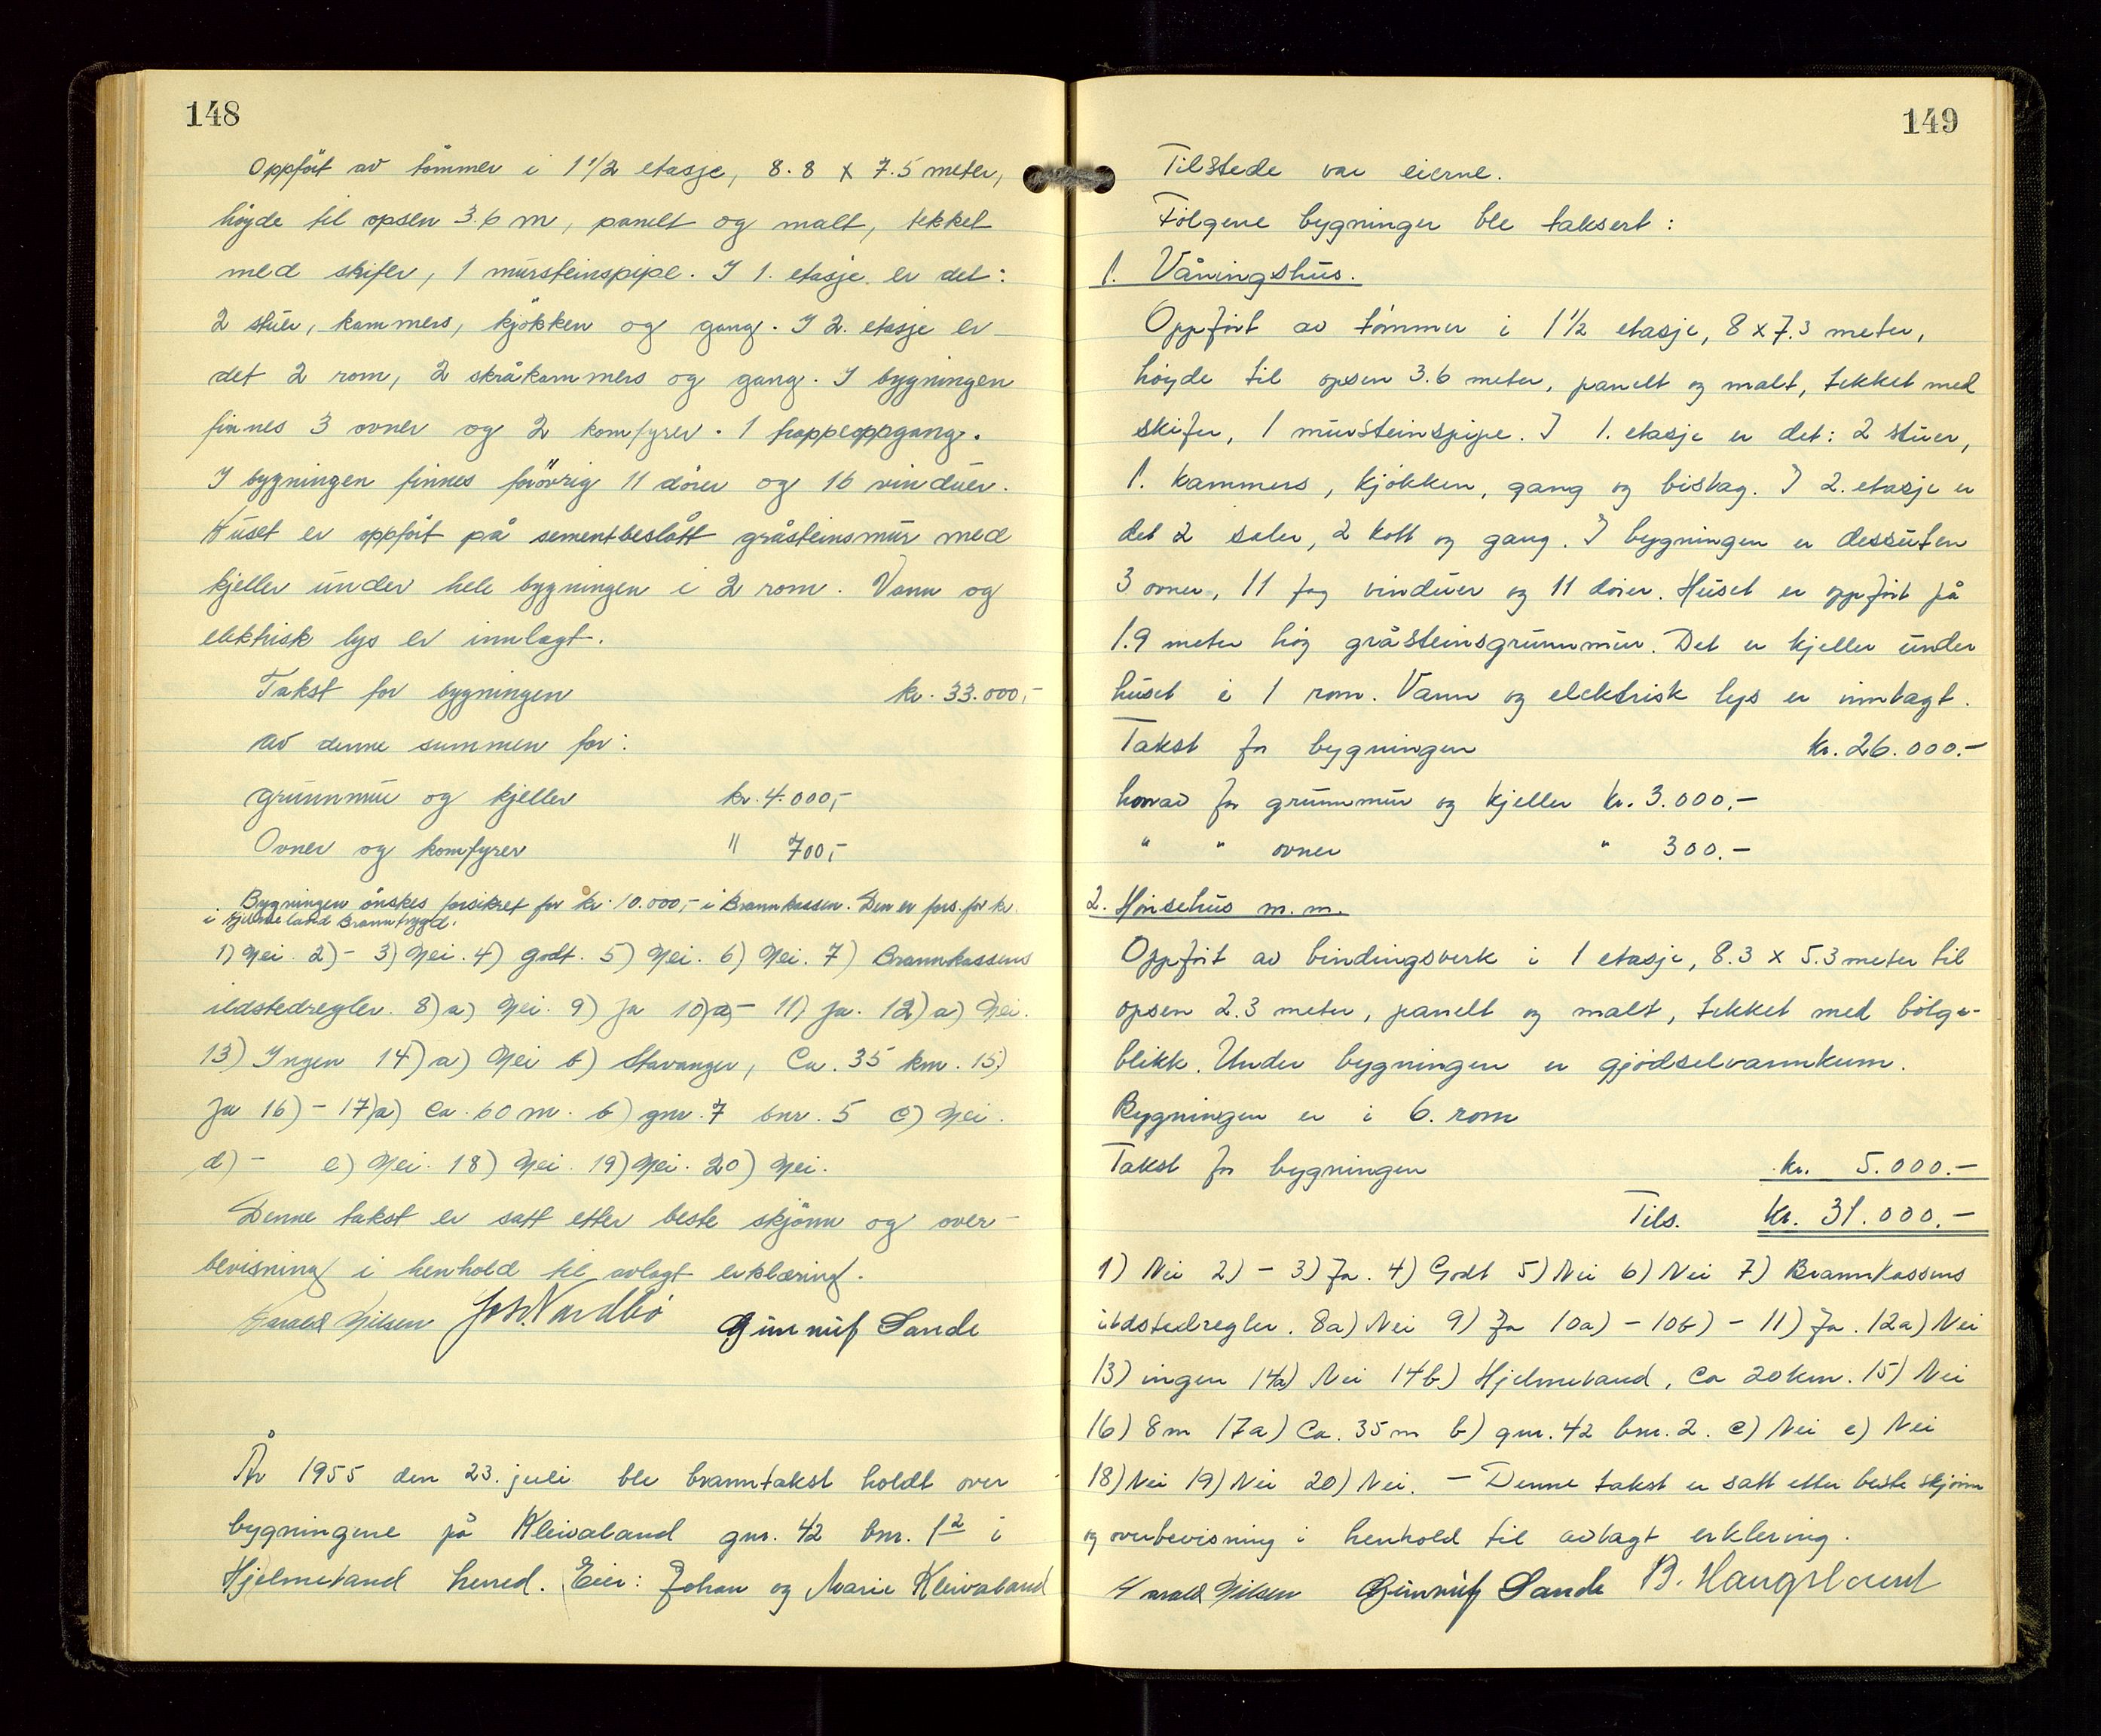 148
Oppført av tømmer i 1 1/2 etasje, 8.8 x 7.5 meter,
høyde til opsen 3.6 m, panelt og malt, tekket
med skifer, 1 mursteinspipe. I 1. etasje er det:
2 stuer, kammers, kjøkken og gang. I 2. etasje er
det 2 rom, 2 skråkammers og gang. I bygningen
finnes 3 ovner og 2 komfyrer. 1 trappeoppgang.
I bygningen finnes forøvrig 11 dører og 16 vinduer.
Huset er oppført på sementbeslått gråsteinsmur med
kjeller under hele bygningen i 2 rom. Vann og
elektrisk lys er innlagt.
Takst for bygningen kr. 33.000,-
av denne summen for:
grunnmur og kjeller kr. 4.000,-
Ovner og komfyrer " 700,-
Bygningen ønskes forsikret for kr. 10.000,- i Brannkassen. Den er fors. for kr.
i Hjelmeland Branntrygd.
1) Nei. 2) - 3) Nei. 4) Godt. 5) Nei. 6) Nei. 7) Brannkassens
ildstedregler. 8) a) Nei. 9) Ja 10) a) - 11) Ja. 12) a) Nei.
13) Ingen 14) a) Nei b) Stavanger, Ca. 35 km. 15)
Ja 16) - 17) a) Ca. 60 m. b) gnr. 7 bnr. 5 c) Nei.
d) - e) Nei. 18) Nei. 19) Nei. 20) Nei.
Denne takst er satt etter beste skjønn og over-
bevisning i henhold til avlagt erklæring.
Harald Nilsen Jon Nordbø Gunnulf Sande
År 1955 den 23. juli ble branntakst holdt over
bygningene på Kleivaland gnr. 42 bnr. 1² i
Hjelmeland herred. Eier: Johan og Marie Kleivaland
149
Tilstede var eierne.
Følgene bygninger ble taksert:
1. Våningshus.
Oppført av tømmer i 1 1/2 etasje, 8 x 7.3 meter,
høyde til opsen 3.6 meter, panelt og malt, tekket med
skifer, 1 mursteinspipe. I 1. etasje er det: 2 stuer,
1. kammers, kjøkken, gang og bislag. I 2. etasje er
det 2 saler, 2 kott og gang. I bygningen er dessuten
3 ovner, 11 fag vinduer og 11 dører. Huset er oppført på
1.9 meter høg gråsteinsgrunnmur. Det er kjeller under
huset i 1 rom. Vann og elektrisk lys er innlagt.
Takst for bygningen kr. 26.000.-
hvorav for grunnmur og kjeller kr. 3.000.-
" " ovner " 300.-
2. Hønsehus m. m.
Oppført av bindingsverk i 1 etasje, 8.3 x 5.3 meter til
opsen 2.3 meter, panelt og malt, tekket med bølge-
blikk. Under bygningen er gjødselvannkum.
Bygningen er i 6. rom
Takst for bygningen kr. 5.000.-
Tils. kr. 31.000.-
1) Nei 2) - 3) Ja. 4) Godt 5) Nei 6) Nei 7) Brannkassens
ildstedregler. 8a) Nei 9) Ja 10a) - 10b) - 11) Ja. 12a) Nei
13) ingen 14a) Nei 14b) Hjelmeland, Ca 20 km. 15) Nei
16) 8m 17a) Ca. 35 m b) gnr. 42 bnr. 2. c) Nei e) Nei
18) Nei 19) Nei 20) Nei. - Denne takst er satt etter beste skjønn
og overbevisning i henhold til avlagt erklering.
Harald Nilsen Gunnulf Sande B. Haugsland